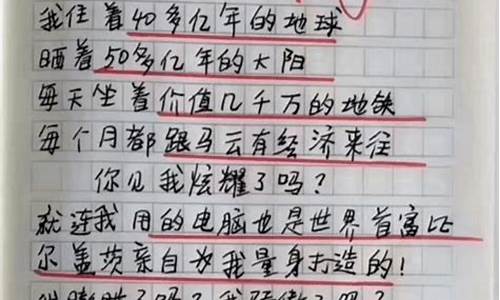 我住着40多亿年的地球
晒着50多亿年的太阳
每天坐着价值几千万的地铁
每个月都跟马云有经济来往
你见我炫耀了吗？
就连我用的电脑也是世界首富比
尔盖茨亲自为我量身打造的！